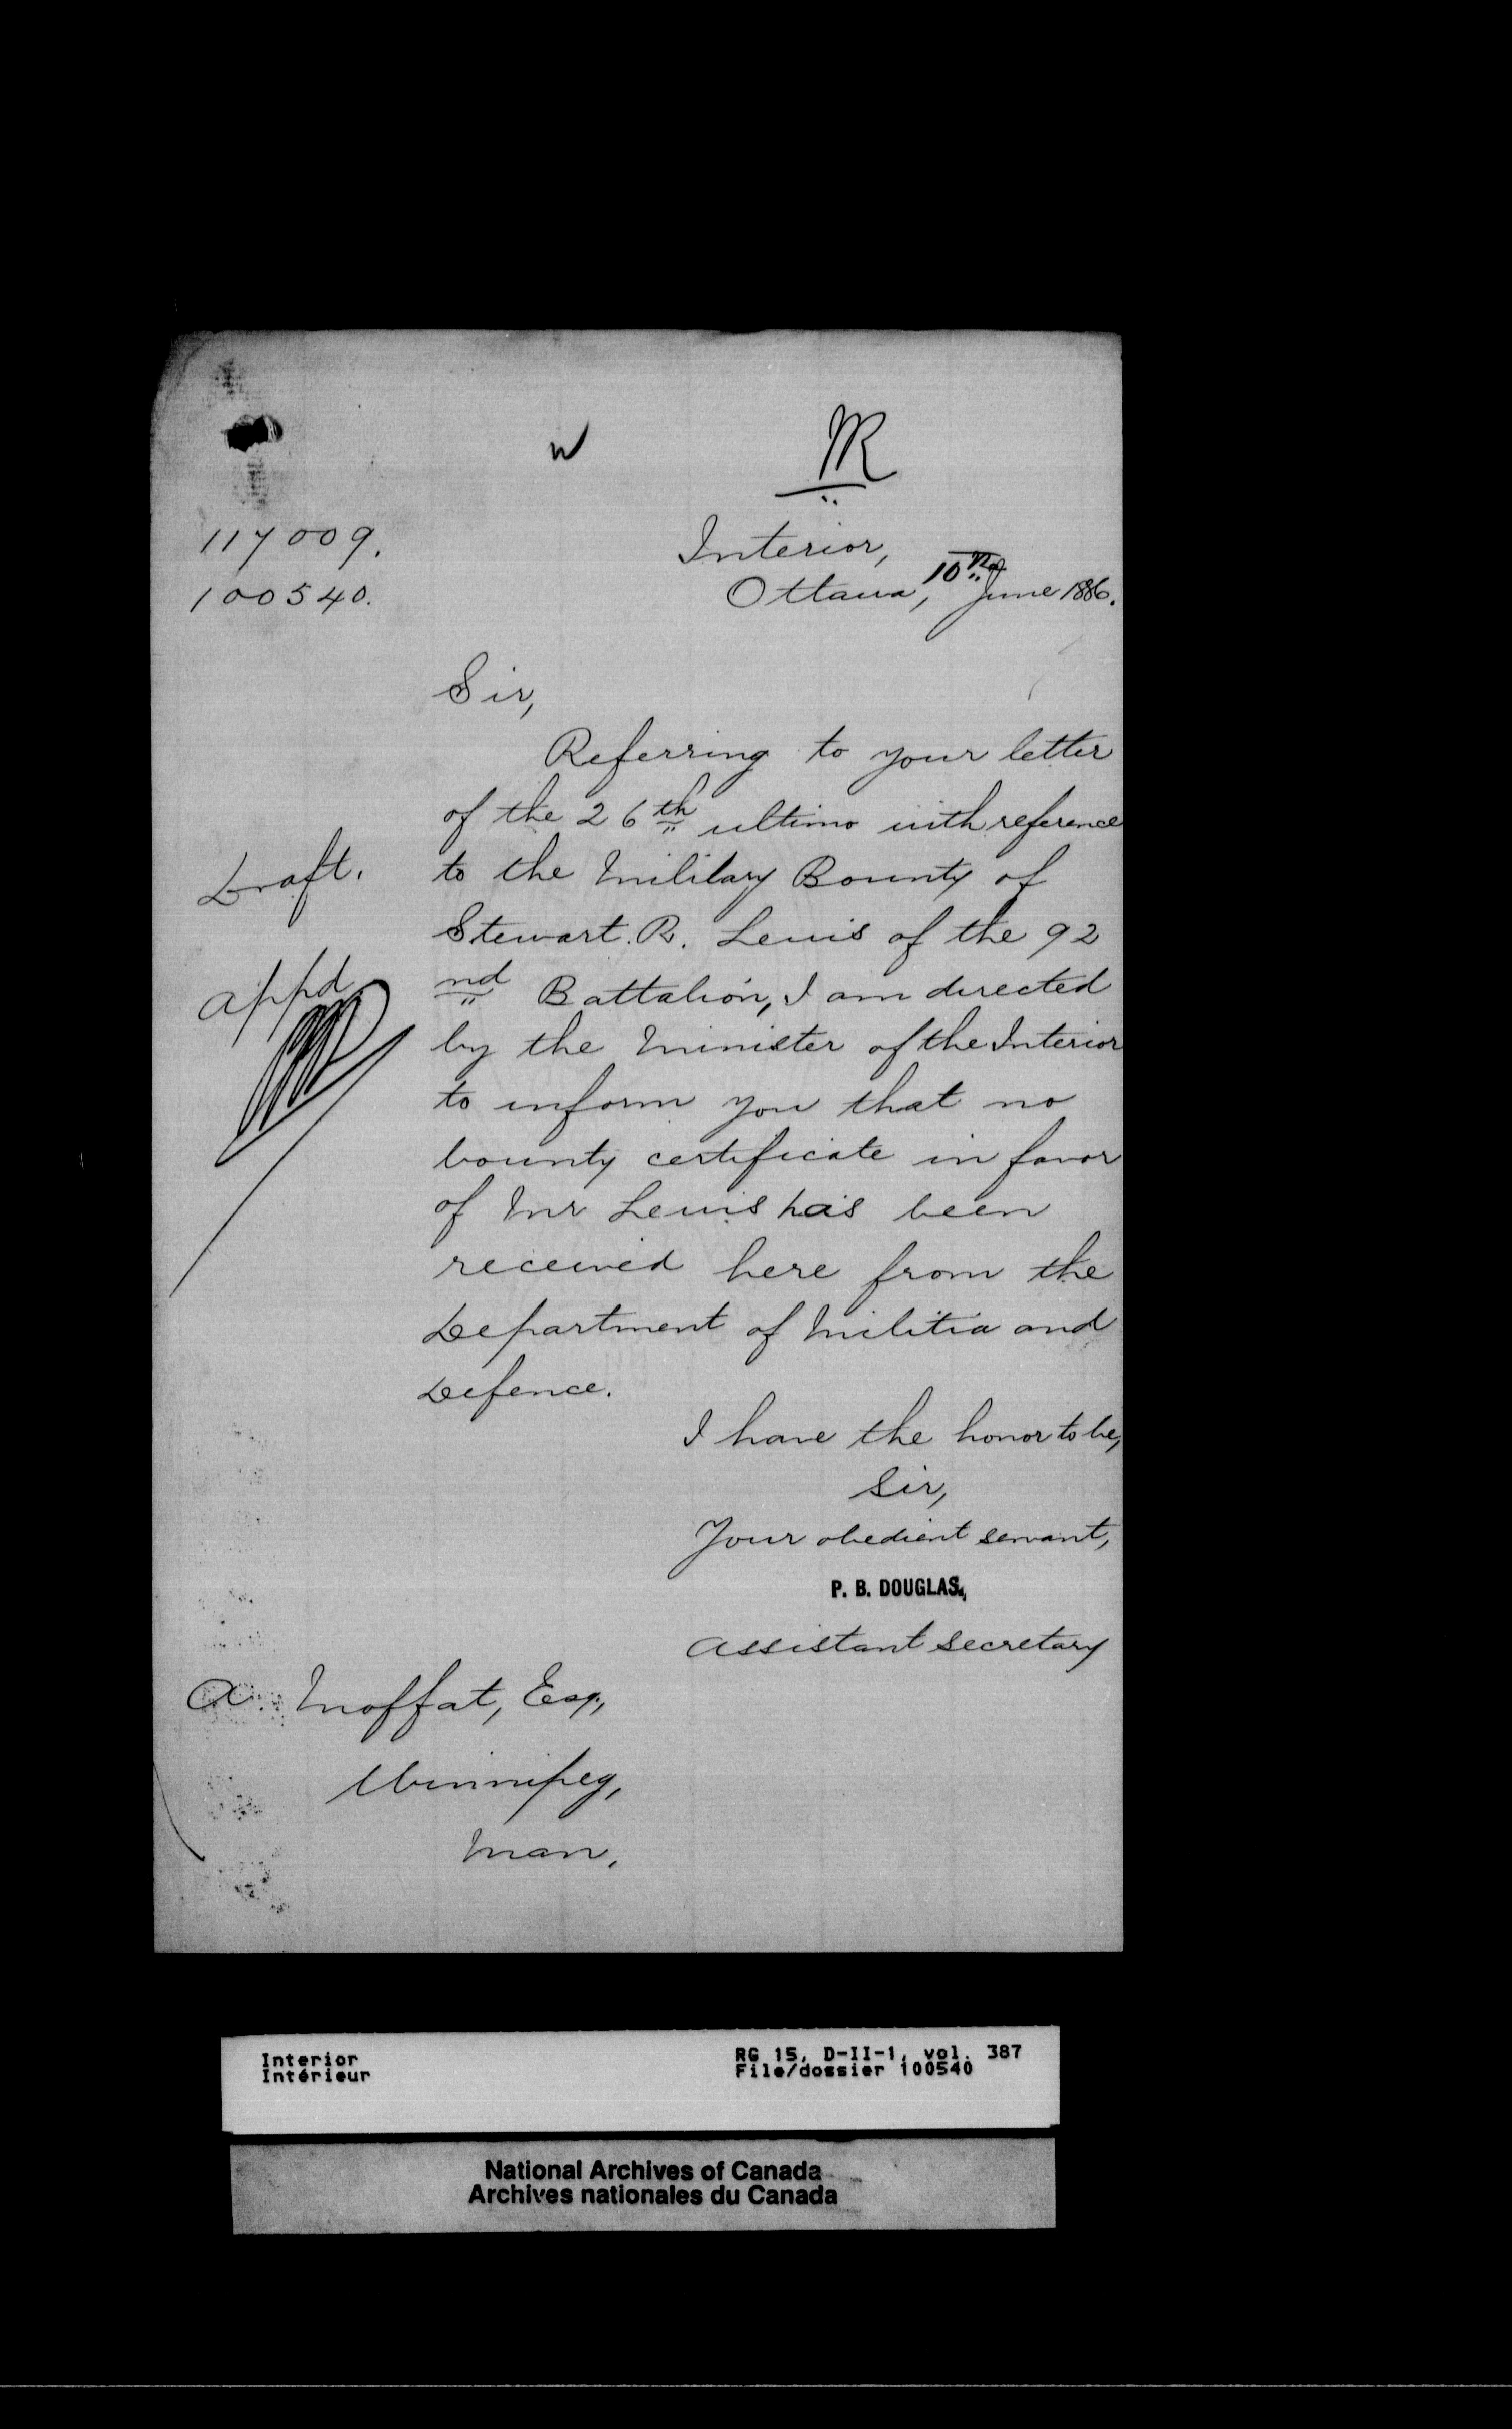 W
117009.
100540.
Interior,
Ottawa, 10th June 1886.
Sir,
Referring to your letter
of the 26th ultimo with reference
Draft. to the Military Bounty of
Stewart. R. Lewis of the 92
appd nd Battalion, I am directed
by the Minister of the Interior
to inform you that no
bounty certificate in favor
of Mr Lewis has been
received here from the
Department of Militia and
Defence.
I have the honor to be,
Sir,
Your obedient servant,
P. B. DOUGLAS.,
Assistant Secretary
A. Moffat, Esq.,
Winnipeg,
Man.
Interior RG 15, D-II-1, vol. 387
Intérieur File/dossier 100540
National Archives of Canada
Archives nationales du Canada